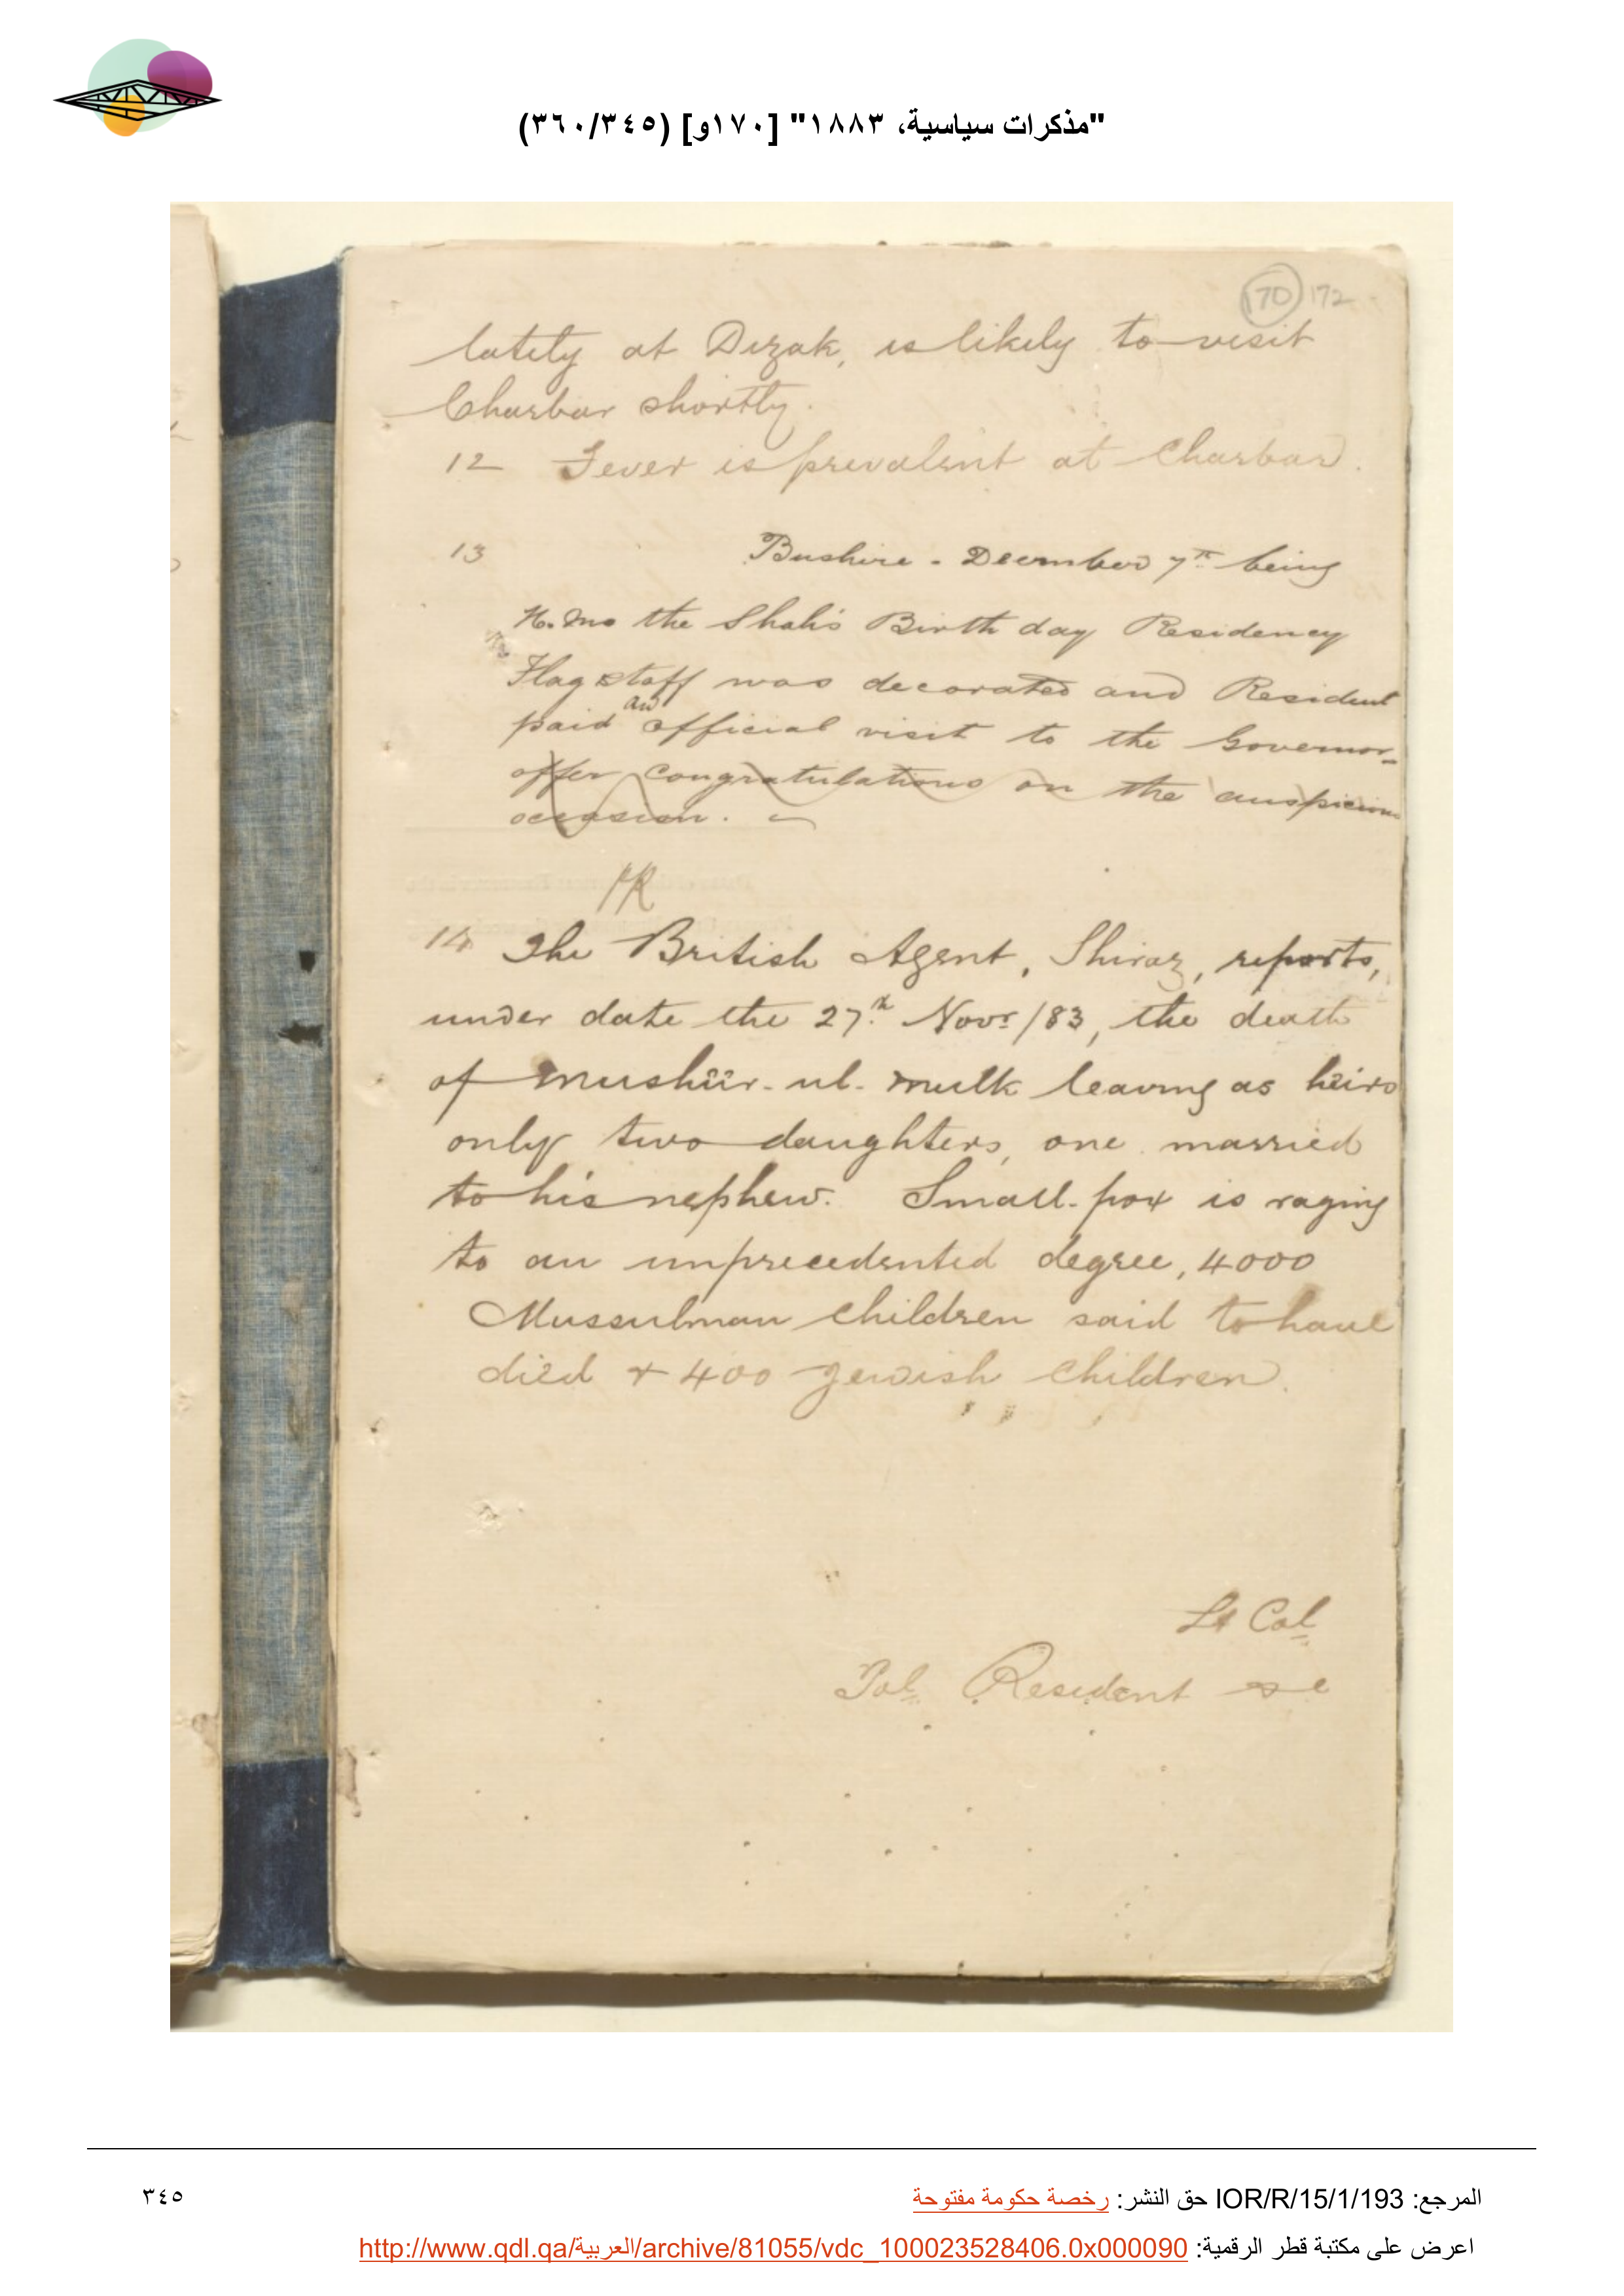 "مذكرات سياسية، ١٨٨٣" [١٧٠و] (٣٦٠/٣٤٥)
170 172
lately at Dizak, is likely to visit
Charbar shortly.
12 Fever is prevalent at Charbar.
13 Bushire - December 7th being
H.Ms the Shah's Birth day Residency
Flag staff was decorated and Resident
an
paid official visit to the Governor
offer congratulations on the auspicious
occasion.
14 The British Agent, Shiraz, reports,
under date the 27th Novr /83, the death
of Mushiir-ul-mulk leaving as heirs
only two daughters, one married
to his nephew. Small-pox is raging
to an unprecedented degree, 4000
Mussulman children said to have
died + 400 Jewish children.
Lt Col
Pol Resident
المرجع: IOR/R/15/1/193 حق النشر: رخصة حكومة مفتوحة
٣٤٥
اعرض على مكتبة قطر الرقمية: http://www.qdl.qa/العربية/archive/81055/vdc_100023528406.0x000090